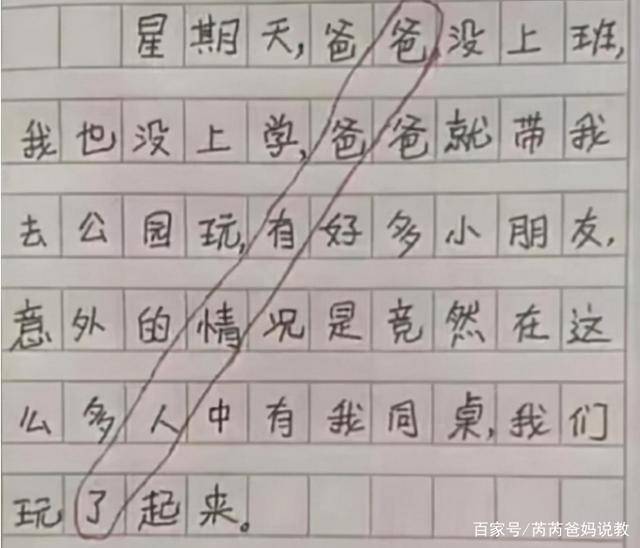 星期天,爸爸没上班,
我也没上学,爸爸就带我
去公园玩,有好多小朋友,
意外的情况是竟然在这
么多人中有我同桌,我们
玩了起来。
百家号/芮芮爸妈说教